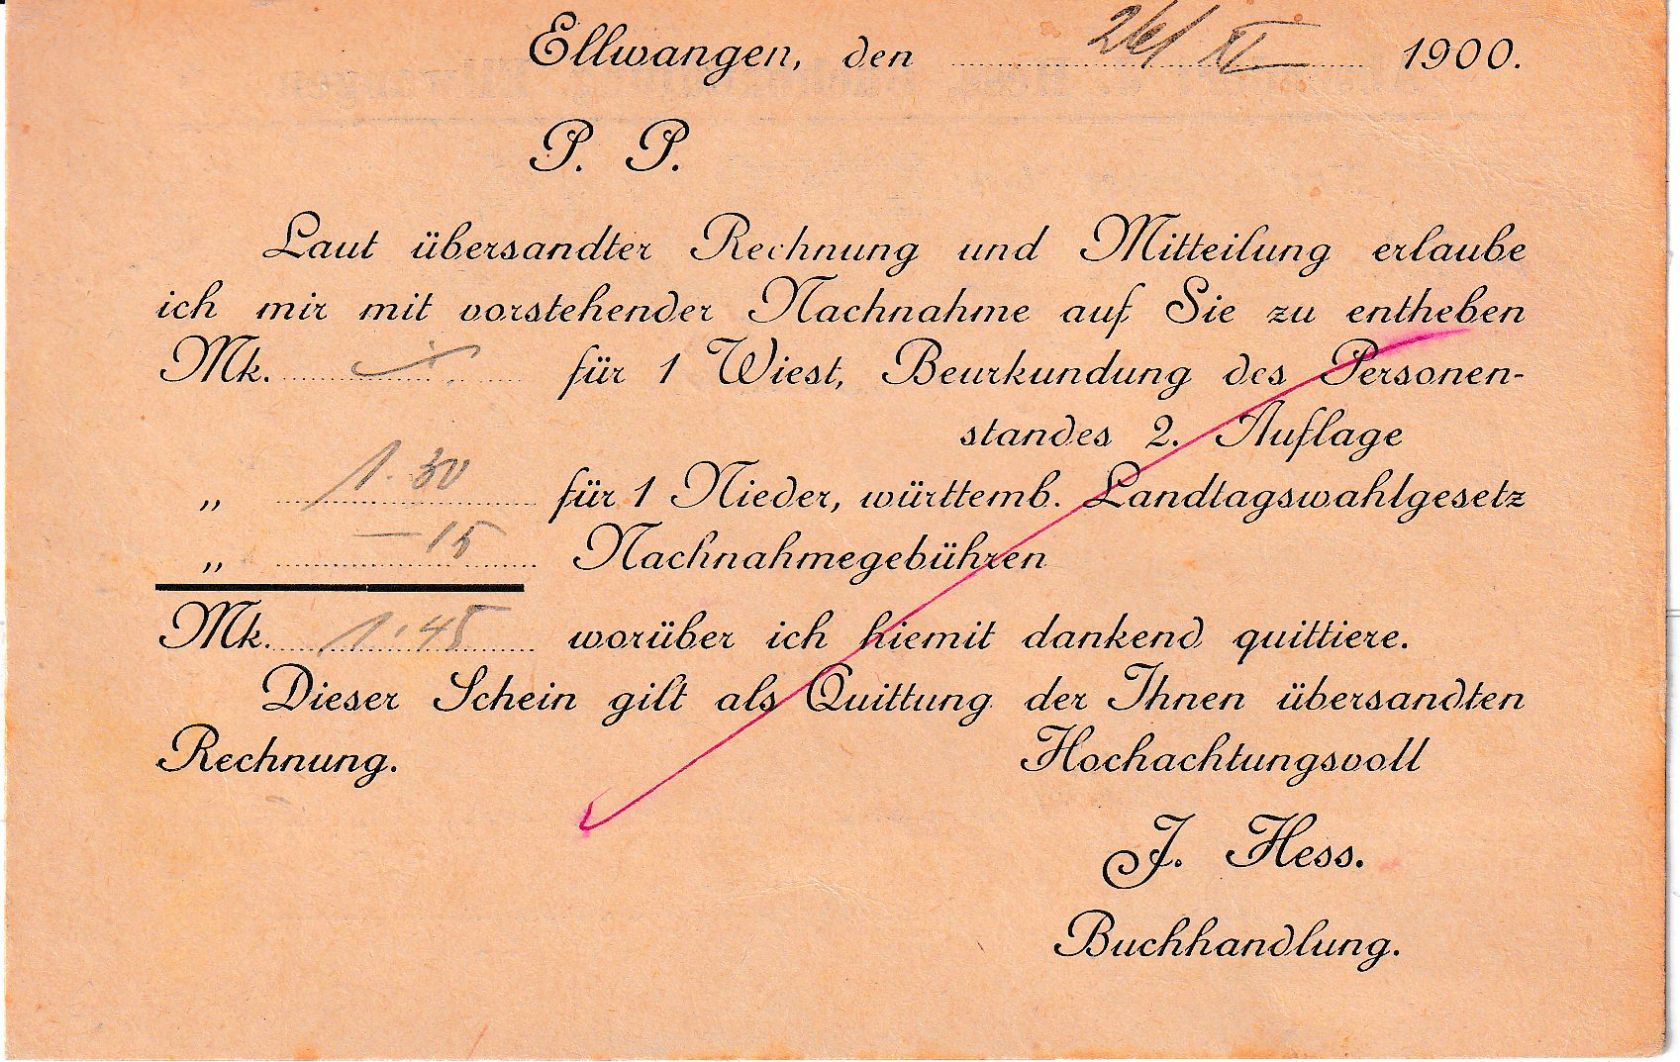 Ellwangen, den 26/XI 1900.
P. P.
Laut übersandter Rechnung und Mitteilung erlaube
ich mir mit vorstehender Nachnahme auf Sie zu entheben
Mk. für 1 Wiest, Beurkundung des Personen-
standes 2. Auflage
„ 1.30 für 1 Nieder, württemb. Landtagswahlgesetz
„ —15 Nachnahmegebühren
Mk. 1.45 worüber ich hiemit dankend quittiere.
Dieser Schein gilt als Quittung der Ihnen übersandten
Rechnung. Hochachtungsvoll
J. Hess.
Buchhandlung.